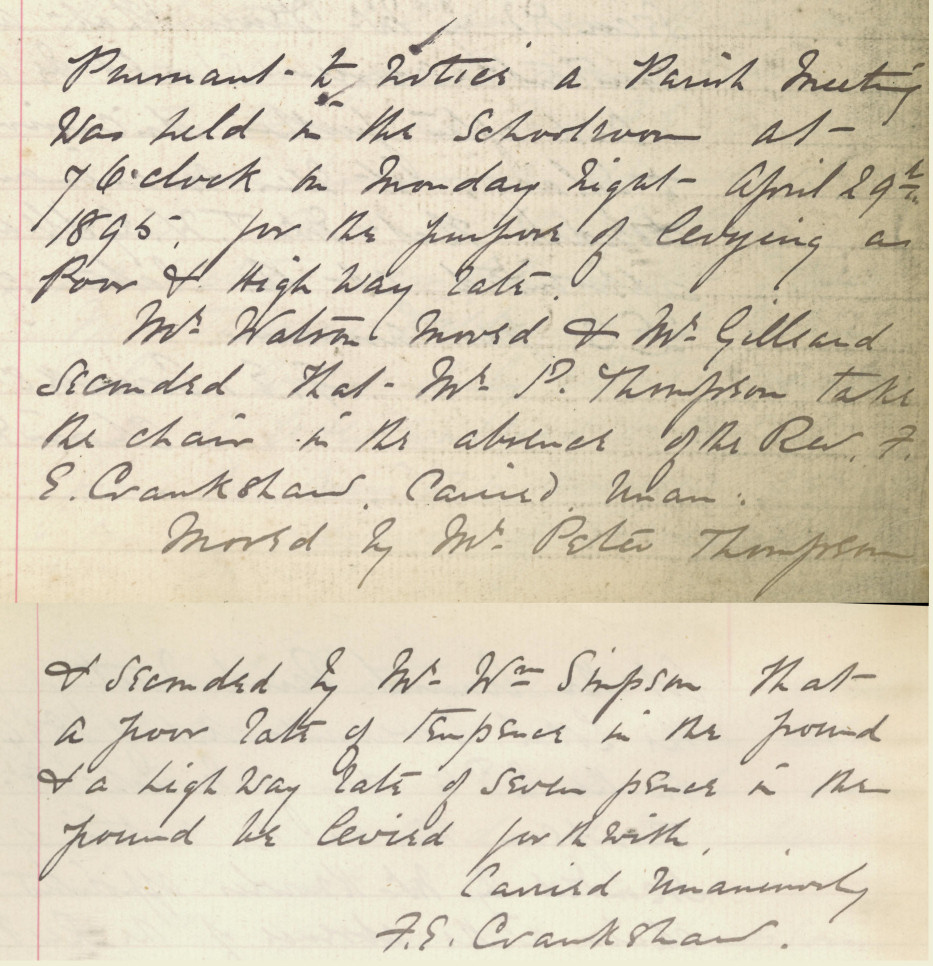 Pursuant to notice a Parish Meeting
was held in the Schoolroom at
7 O'clock on Monday night April 29th
1895, for the purpose of levying a
Poor & High Way rate.
Mr Watson moved & Mr Gilleard
Seconded that Mr P. Thompson take
the chair in the absence of the Rev. F.
E. Crankshaw. Carried Unan:
Moved by Mr Peter Thompson
& Seconded by Mr Wm Simpson that
a poor rate of tenpence in the pound
& a high Way rate of seven pence in the
pound be levied forthwith.
Carried Unanimously
F.E. Crankshaw.